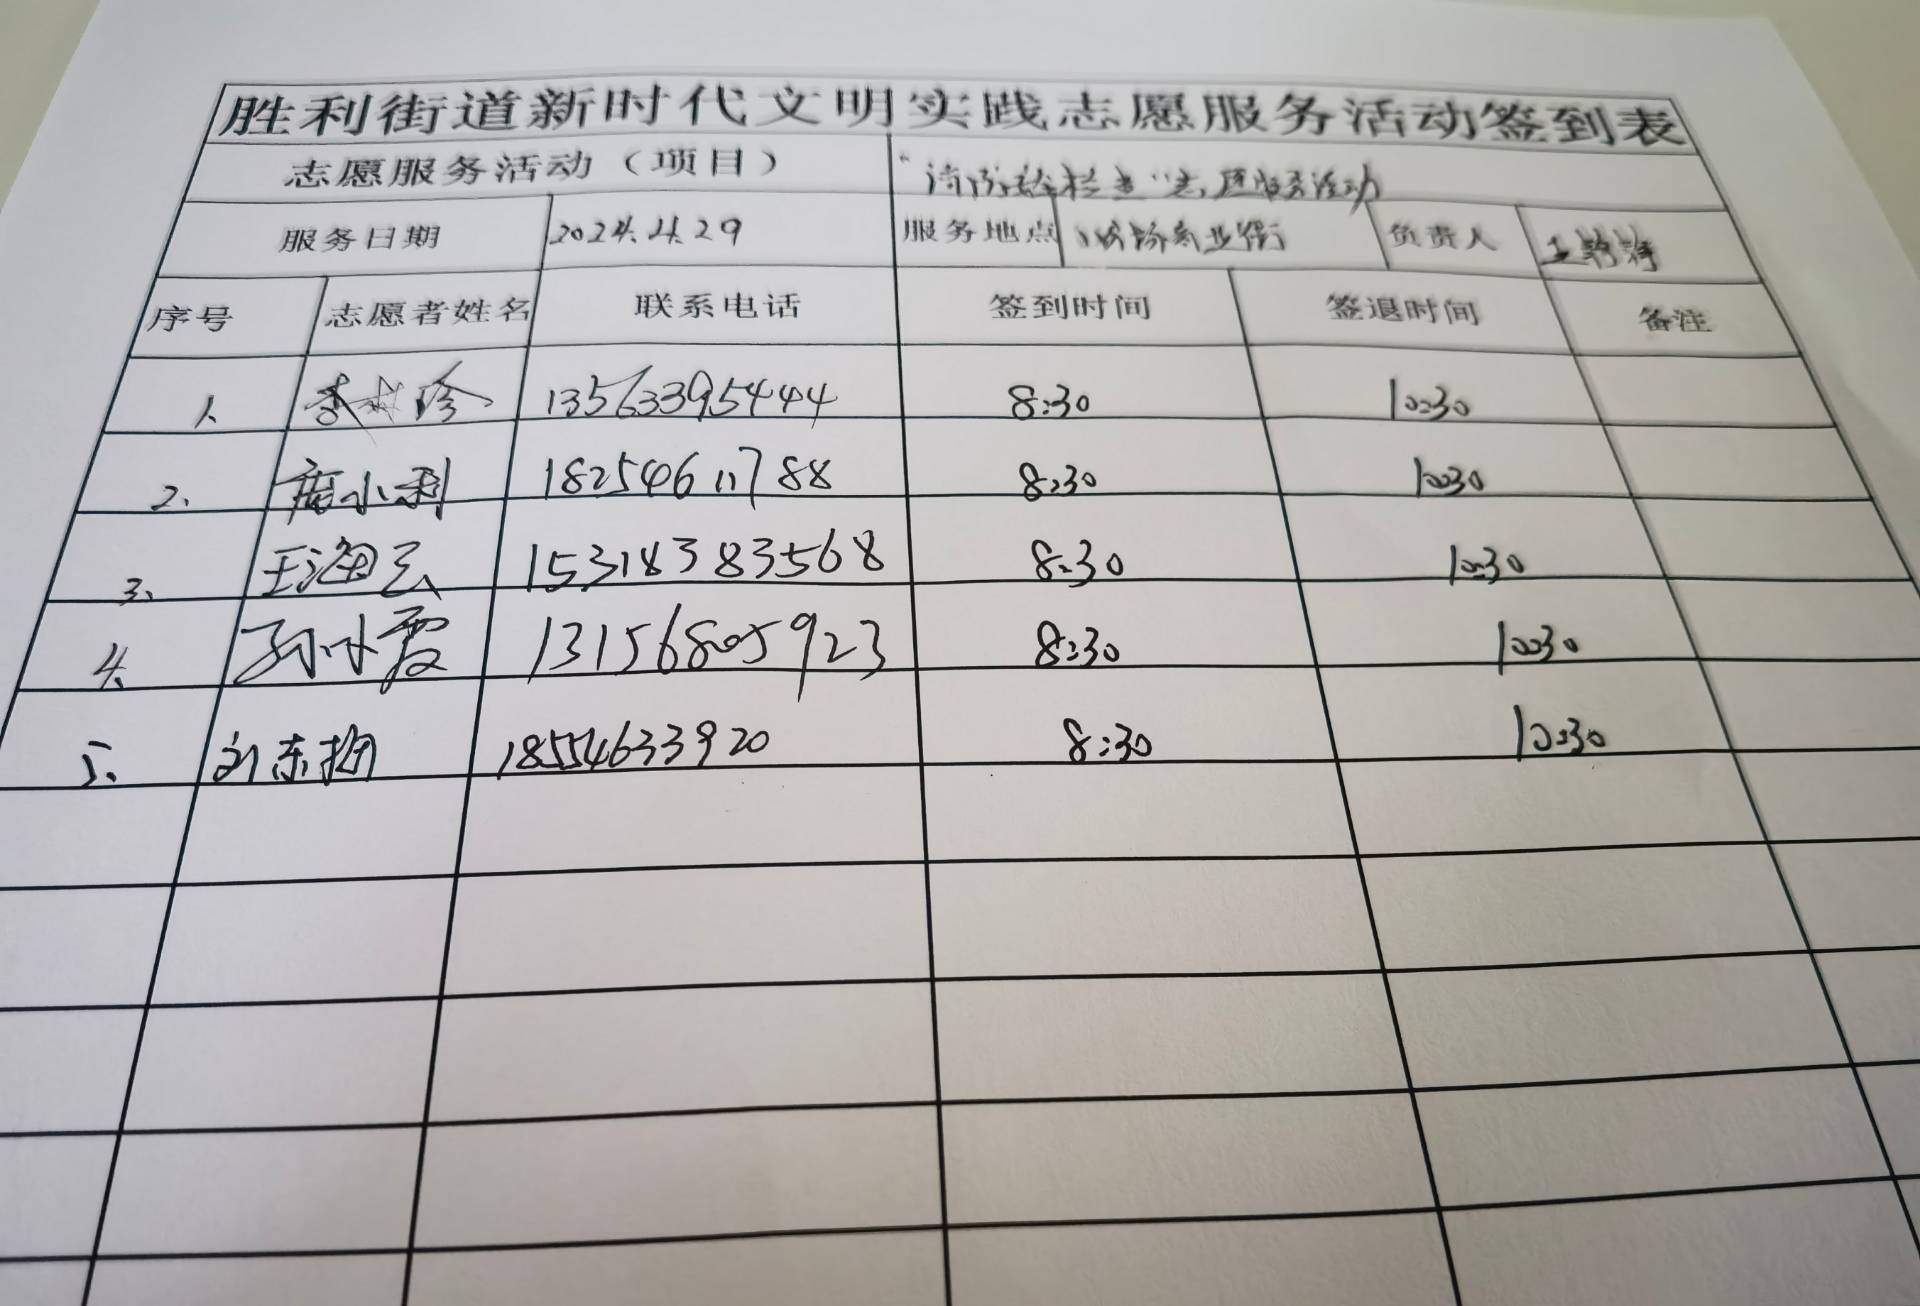 胜利街道新时代文明实践志愿服务活动签到表
志愿服务活动（项目） "消防安全检查"志愿服务活动
服务日期 2024.4.29 服务地点 商业街 负责人
序号 志愿者姓名 联系电话 签到时间 签退时间 备注
1、 李 珍 13563395444 8:30 10:30
2、 小利 18254611788 8:30 10:30
3、 王海云 15318383568 8:30 10:30
4、 孙小霞 13156805923 8:30 10:30
5、 刘东梅 18554633920 8:30 10:30